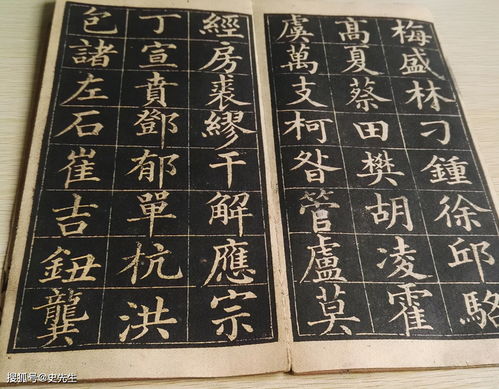 梅盛林刁鍾徐邱駱
髙夏蔡田樊胡凌霍
虞萬支柯昝管盧莫
經房裘繆干解應宗
丁宣賁鄧郁單杭洪
包諸左石崔吉鈕龔
搜狐号@史先生